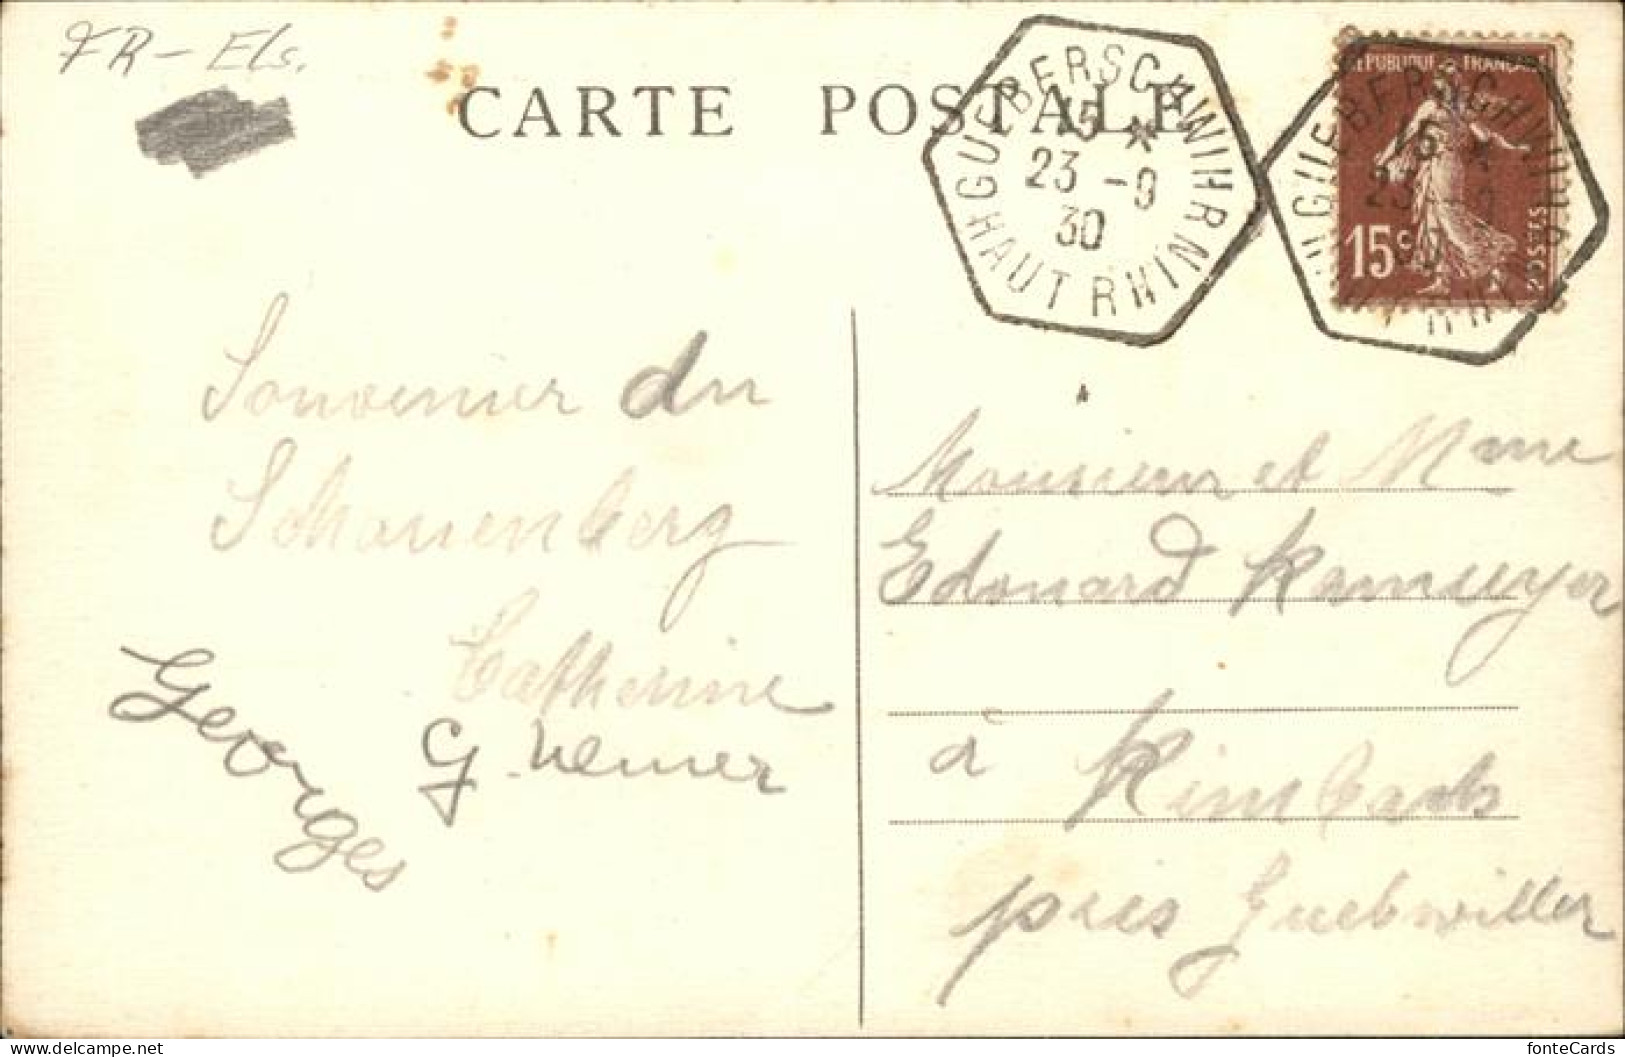 FR - Els.
CARTE POSTALE
GUEBERSCHWIHR
15 *
23 -9
30
HAUT RHIN
REPUBLIQUE FRANÇAISE
15c
POSTES
GUEBERSCHWIHR
15 *
23 -9
Souvenir du
Schauenberg
Catherine
G.
Georges
Monsieur et Mme
Edouard
à Rimbach
près Guebwiller
Fotos-Welt
fonteCards